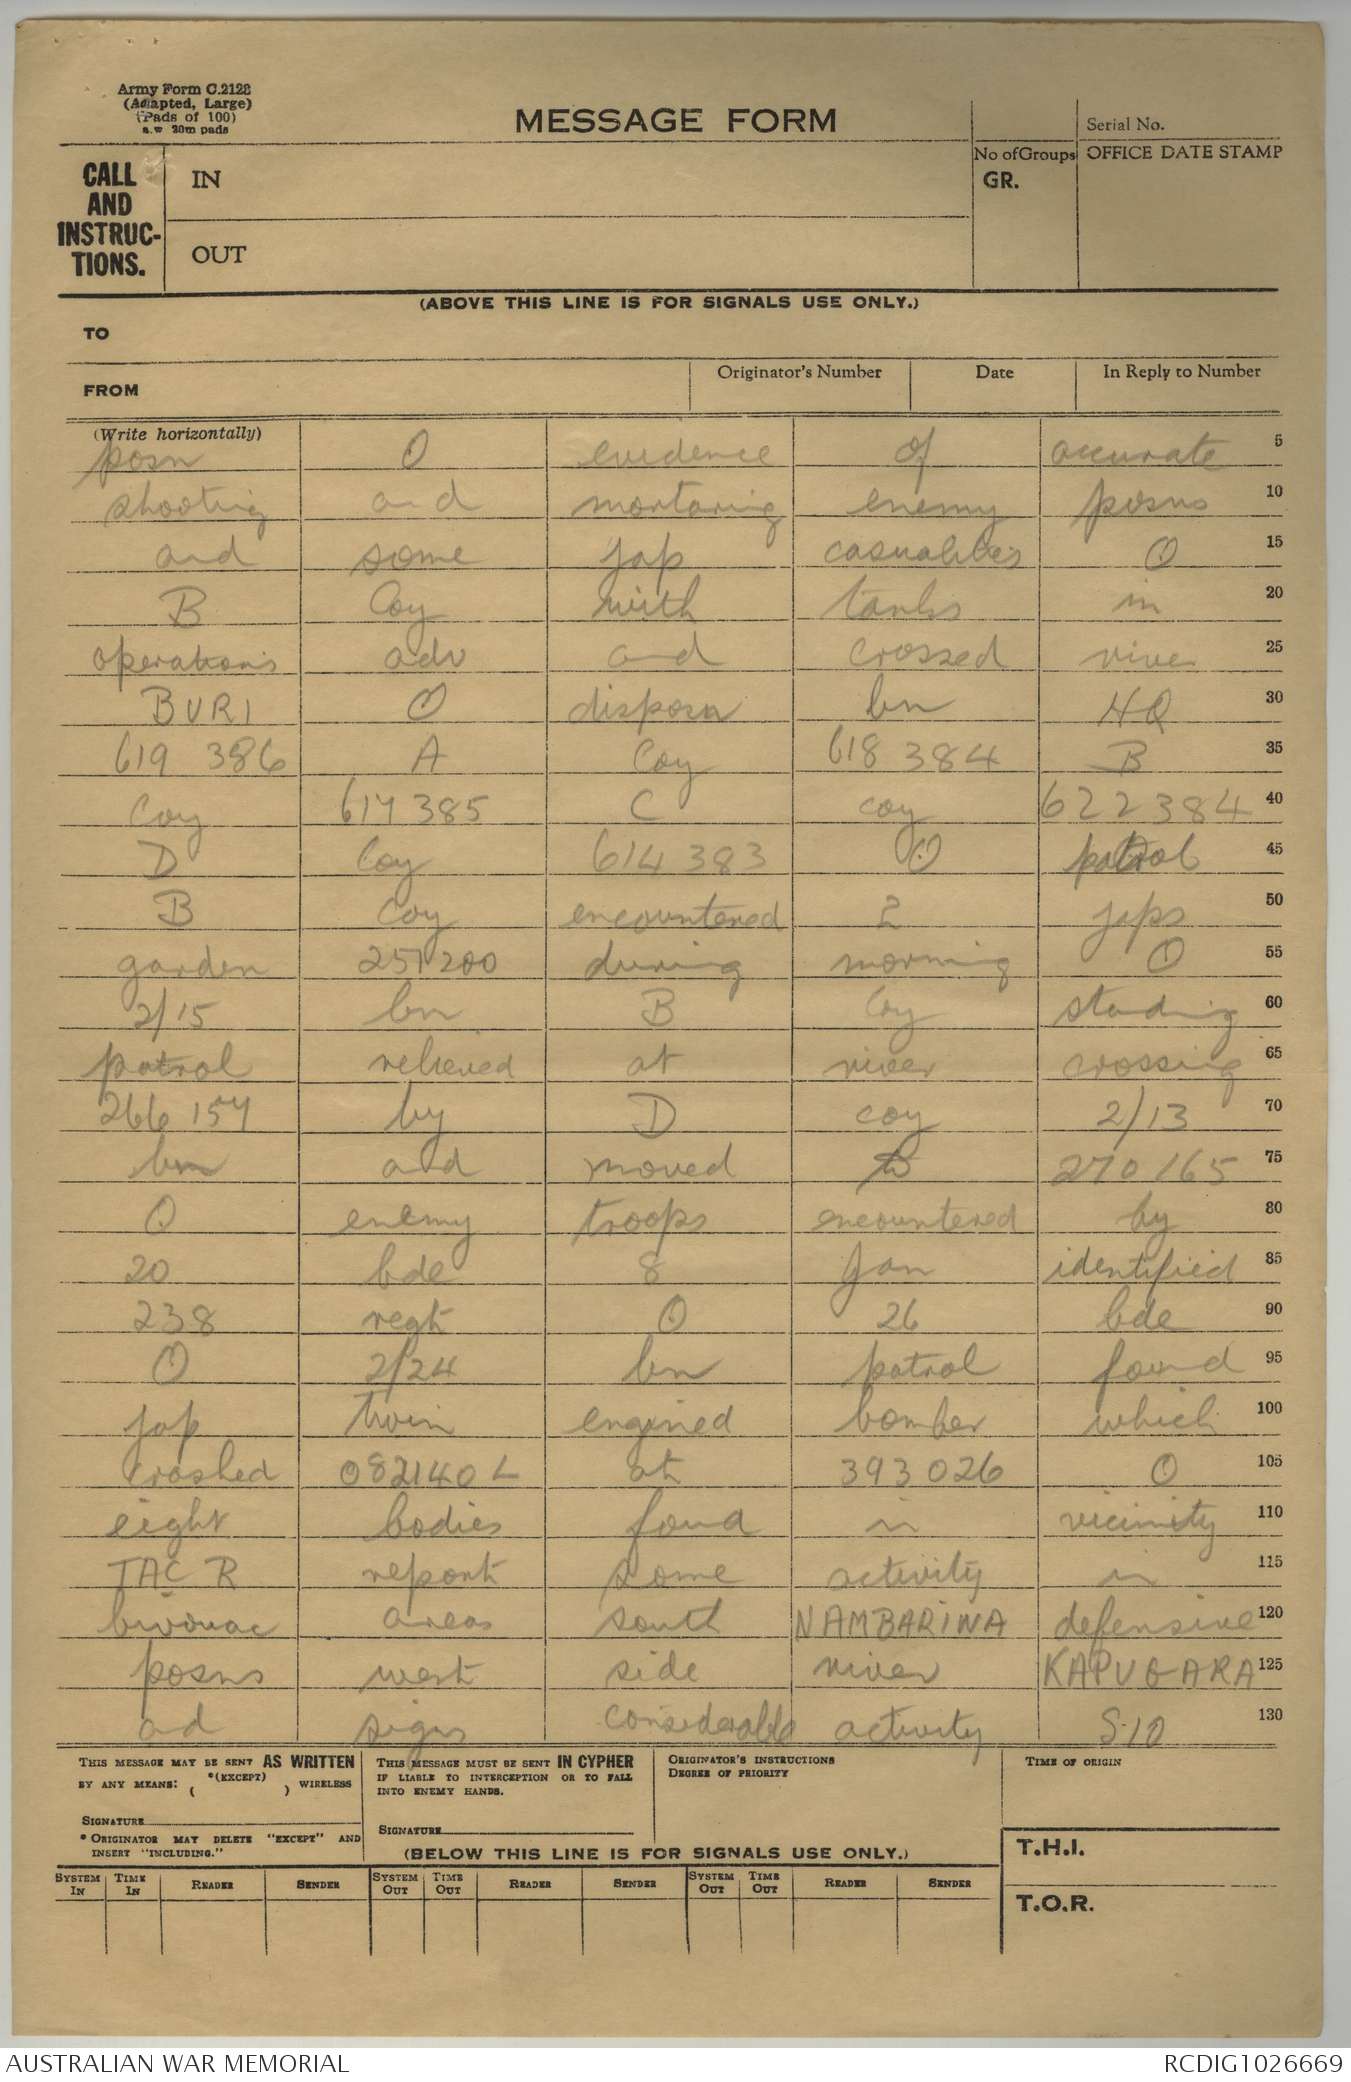 Army Form C.2128
(Adapted, Large)
(Pads of 100)
MESSAGE FORM
Serial No.
No of Groups
GR.
OFFICE DATE STAMP
CALL
AND
INSTRUC-
TIONS.
IN
OUT
(ABOVE THIS LINE IS FOR SIGNALS USE ONLY.)
TO
FROM
Originator's Number Date In Reply to Number
(Write horizontally)
posn O evidence of accurate 5
shooting and mortaring enemy posns 10
and some jap casualties O 15
B Coy with tanks in 20
operations adv and crossed river 25
BURI O disposn bn HQ 30
619 386 A Coy 618 384 B 35
Coy 617 385 C coy 622384 40
D Coy 614 383 O patrol 45
B coy encountered 2 japs 50
garden 257200 during morning O 55
2/15 bn B Coy standing 60
patrol relieved at river crossing 65
266 157 by D coy 2/13 70
bn and moved to 270165 75
O enemy troops encountered by 80
20 bde 8 Jan identified 85
238 regt O 26 bde 90
O 2/24 bn patrol found 95
jap twin engined bomber which 100
crashed 082140L at 393026 O 105
eight bodies found in vicinity 110
TAC R report some activity in 115
bivouac areas south NAMBARIWA defensive 120
posns west side river KAPUGARA 125
and signs considerable activity S-10 130
THIS MESSAGE MAY BE SENT AS WRITTEN
BY ANY MEANS: ( *(EXCEPT) ) WIRELESS
SIGNATURE
* ORIGINATOR MAY DELETE "EXCEPT" AND
INSERT "INCLUDING."
THIS MESSAGE MUST BE SENT IN CYPHER
IF LIABLE TO INTERCEPTION OR TO FALL
INTO ENEMY HANDS.
SIGNATURE
ORIGINATOR'S INSTRUCTIONS
DEGREE OF PRIORITY
TIME OF ORIGIN
(BELOW THIS LINE IS FOR SIGNALS USE ONLY.)
T.H.I.
T.O.R.
SYSTEM IN TIME IN READER SENDER SYSTEM OUT TIME OUT READER SENDER SYSTEM OUT TIME OUT READER SENDER
AUSTRALIAN WAR MEMORIAL RCDIG1026669